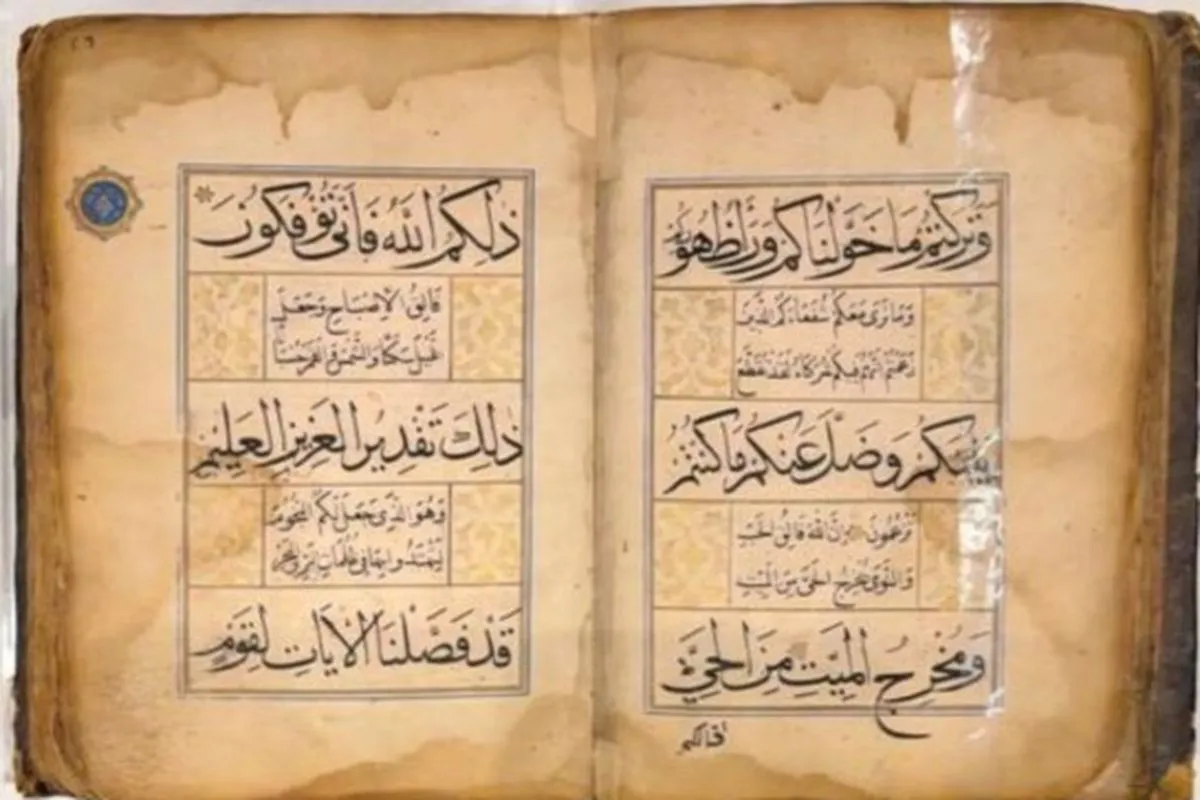 وَتَرَكْتُمْ مَا خَوَّلْنَاكُمْ وَرَاءَ ظُهُورِكُمْ
وَمَا نَرَى مَعَكُمْ شُفَعَاءَكُمُ الَّذِينَ
زَعَمْتُمْ أَنَّهُمْ فِيكُمْ شُرَكَاءُ لَقَدْ تَقَطَّعَ
بَيْنَكُمْ وَضَلَّ عَنْكُمْ مَا كُنْتُمْ
تَزْعُمُونَ إِنَّ اللَّهَ فَالِقُ الْحَبِّ
وَالنَّوَى يُخْرِجُ الْحَيَّ مِنَ الْمَيِّتِ
وَمُخْرِجُ الْمَيِّتِ مِنَ الْحَيِّ
ذَلِكُمُ اللَّهُ فَأَنَّى تُؤْفَكُونَ
فَالِقُ الْإِصْبَاحِ وَجَعَلَ
اللَّيْلَ سَكَنًا وَالشَّمْسَ وَالْقَمَرَ حُسْبَانًا
ذَلِكَ تَقْدِيرُ الْعَزِيزِ الْعَلِيمِ
وَهُوَ الَّذِي جَعَلَ لَكُمُ النُّجُومَ
لِتَهْتَدُوا بِهَا فِي ظُلُمَاتِ الْبَرِّ وَالْبَحْرِ
قَدْ فَصَّلْنَا الْآيَاتِ لِقَوْمٍ